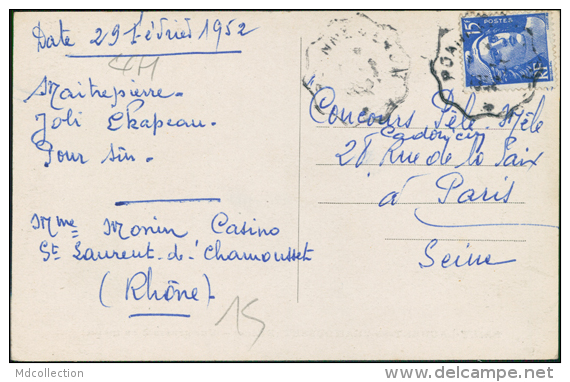 Date 29 Février 1952
Maitrepierre -
Joli Chapeau -
Pour sûr -
Mme Monin Casino
St Laurent-de-Chamousset
(Rhône)
15
Concours Pêle-Mêle
Cadoricin
28 Rue de la Paix
à Paris
Seine
15f
POSTES
RF
Mdcollection
www.delcampe.net